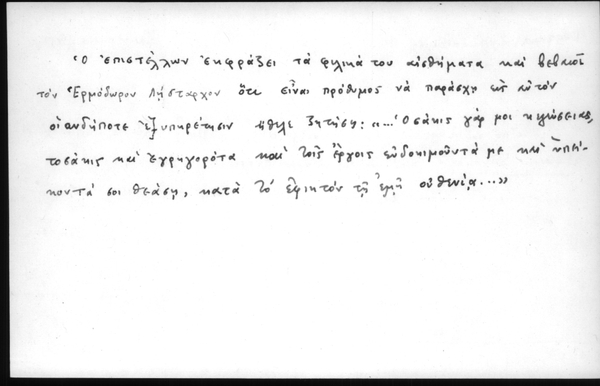 Ὁ ἐπιστέλλων ἐκφράζει τά φιλικά του αἰσθήματα καί βεβαιοῖ
τόν Ἑρμόδωρον Λήσταρχον ὅτι εἶναι πρόθυμος νά παράσχῃ εἰς αὐτόν
οἱανδήποτε ἐξυπηρέτησιν ἤθελε ζητήσῃ: «...Ὁσάκις γάρ μοι
τοσάκις καί ἐγρηγορότα καί τοῖς ἔργοις εὐδοκιμοῦντά με καί ὑπεί-
κοντά σοι θεάσῃ, κατά τό ἐφικτόν τῇ ἐμῇ οὐθενίᾳ...»